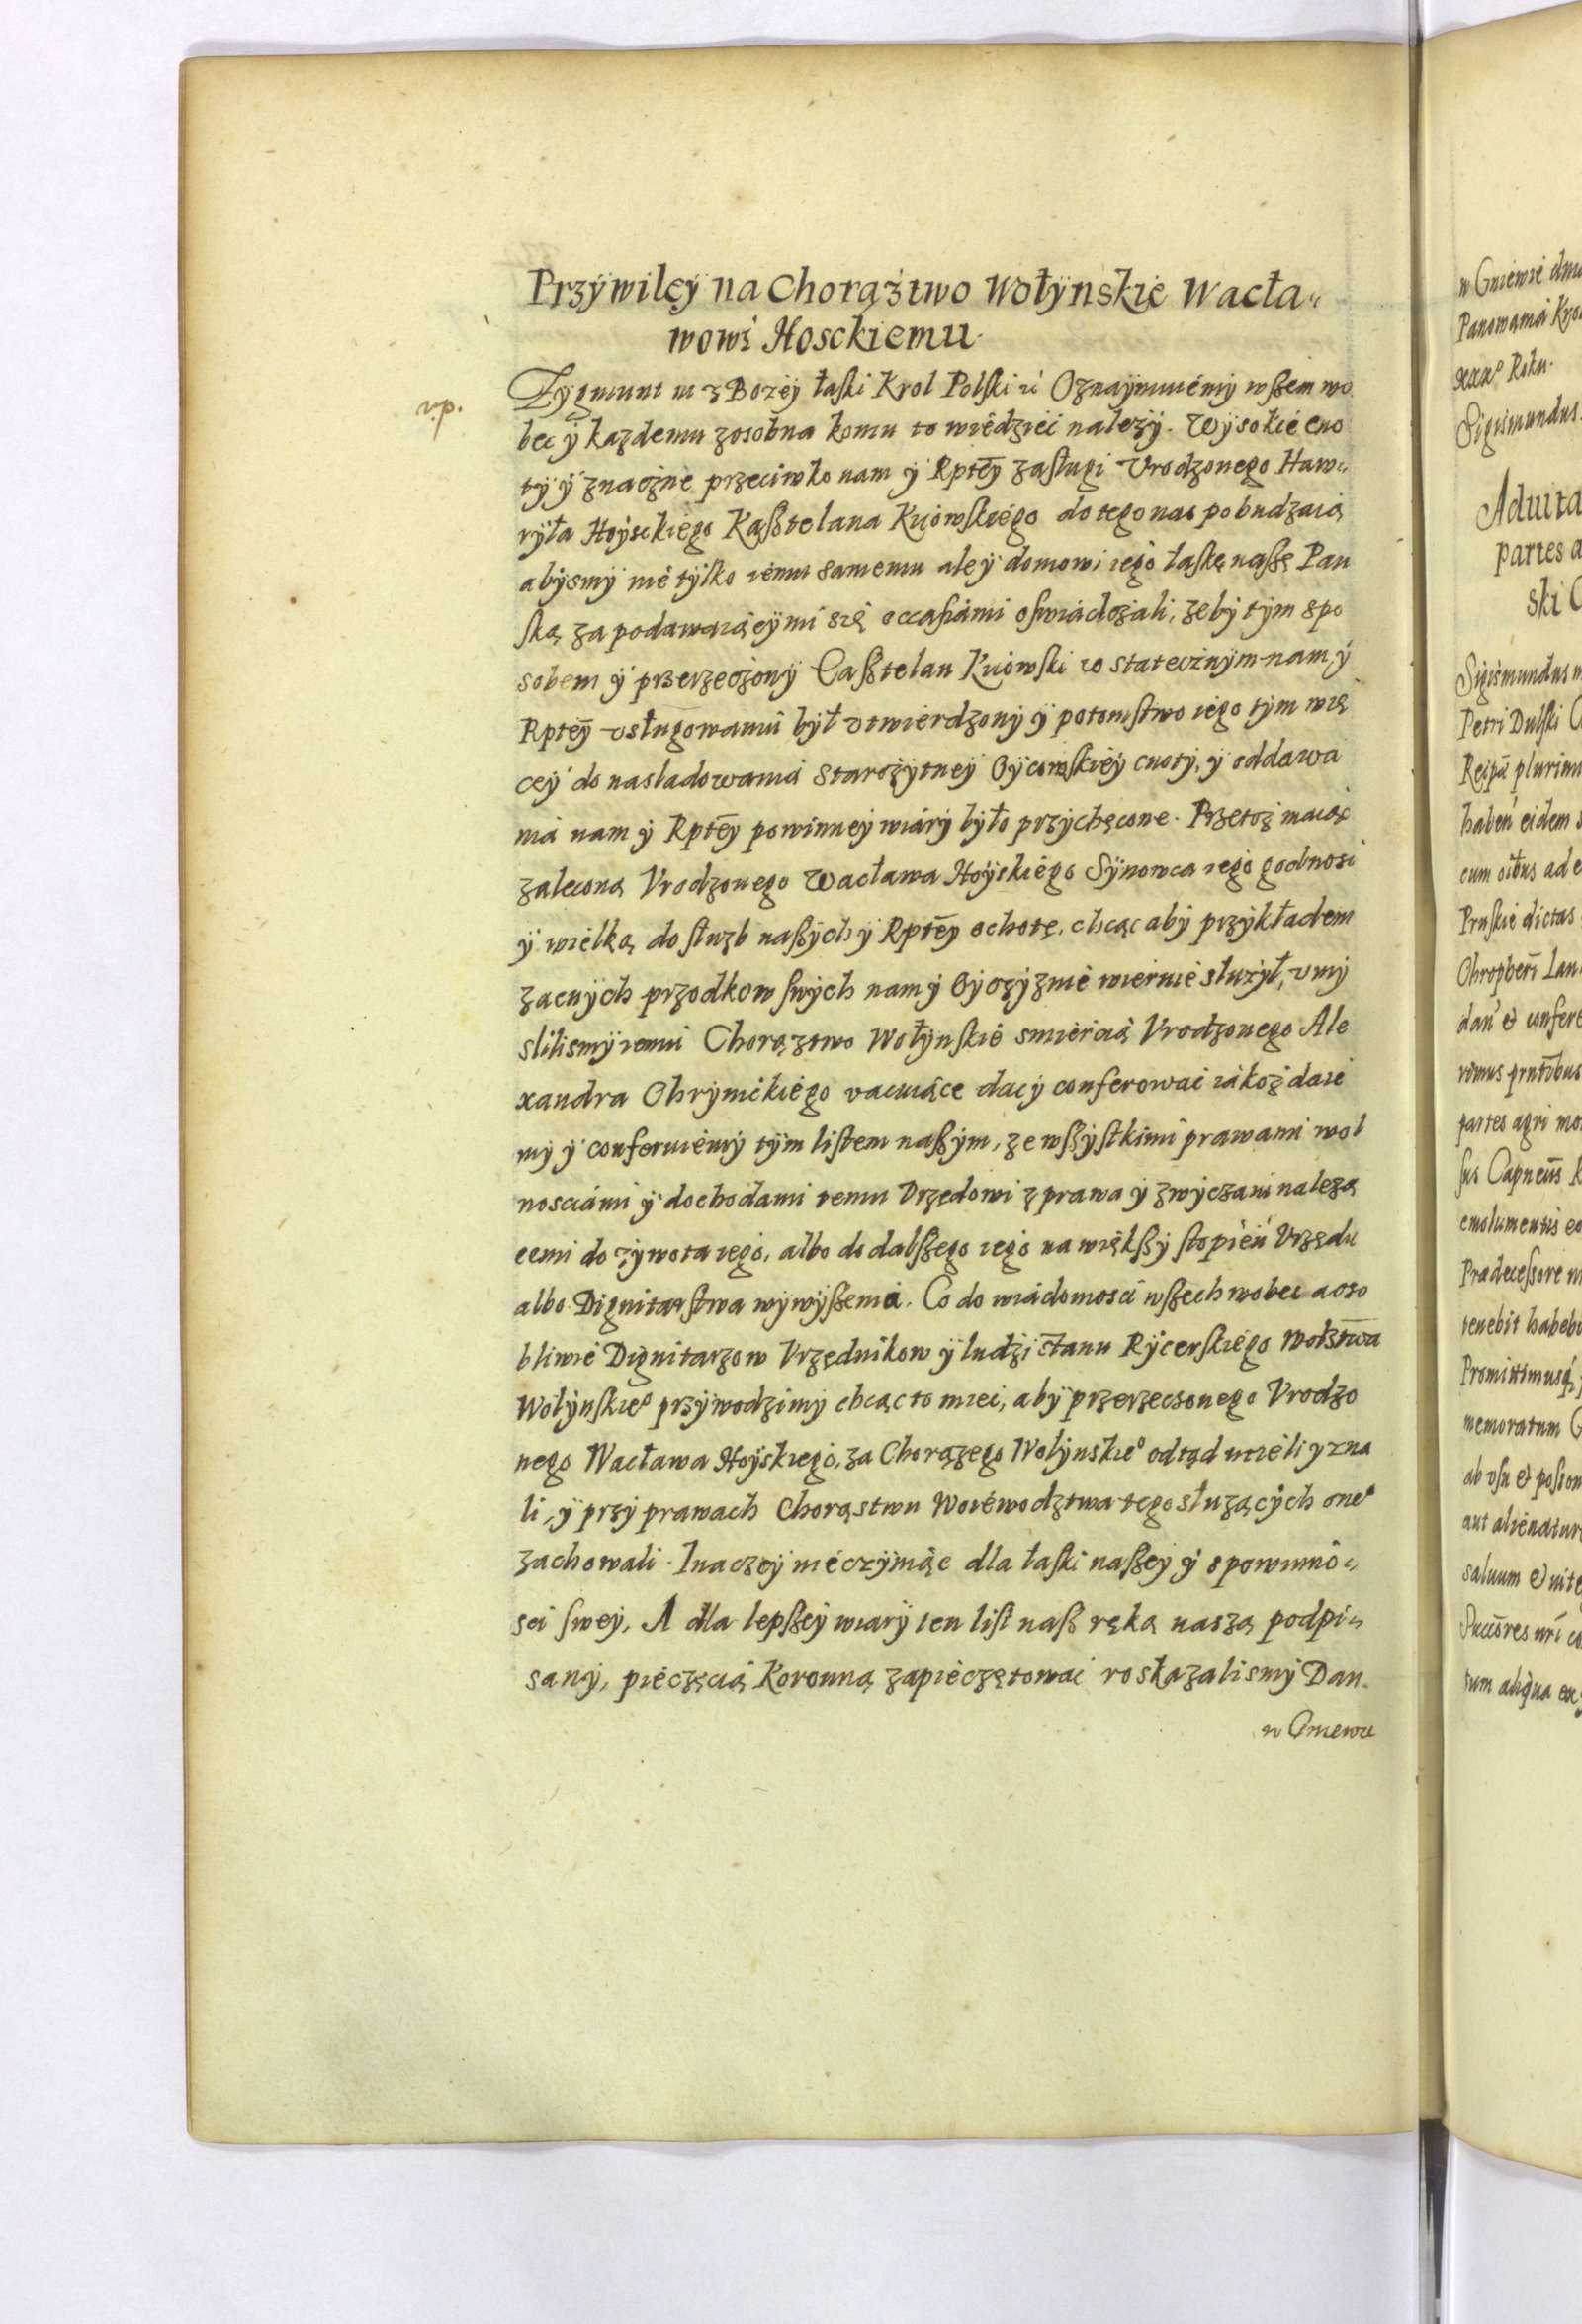 Przÿwiley na Chorąźtwo Wołÿnskie Wacła„
wowi Hosckiemu.
v.p.
Zygmunt III z Bozey łaski Krol Polski ić Oznaymuiemy wszem wo
bec y kazdemu zosobna komu to wiedzieć nalezy. Wysokie cno
ty y znaczne przeciwko nam y Rptēy zasługi Vrodzonego Haw„
ryła Hoysckiego Kasztelana Kiiowskiego do tego nas pobudzaią
abysmy nie tylko iemu samemu ale y domowi iego łaskę naszę Pan
ską za podawaiącymi się occasiami oswiadczali, zeby tym spo
sobem y przerzeczony Casztelan Kiiowski w statecznym nam y
Rptēy vsługowaniu był vtwierdzony y potomstwo iego tym wię
cey do nasladowania starozytney Oycowskiey cnoty, y oddawa
nia nam y Rptēy powinney wiary było przychęcone. Przetoz maiąc
zaleconą Vrodzonego Wacława Hoyskiego Synowca iego godnosć
y wielką do słuzb naszych y Rptēy ochotę, chcąc aby przykładem
zacnych przodkow swych nam y Oyczyznie wiernie słuzył, vmy
slilismy iemu Chorąztwo Wołynskie smiercią Vrodzonego Ale
xandra Chrynickiego vacuiące dac y conferowac iakoz daie
my y conferuiemy tym listem naszym, ze wszystkimi prawami wol
nosciami y dochodami temu Vrzędowi z prawa y zwyczaiu nalezą
cemi do zywota iego, albo do dalszego iego na większy stopień Vrzędu
albo Dignitarstwa wywyszenia. Co do wiadomosci wszech wobec a oso
bliwie Dignitarzow Vrzędnikow y ludzi stanu Rycerskiego Wołstwa
Wołynskieº przywodzimy chcąc to miec, aby przerzeczonego Vrodzo
nego Wacława Hoyskiego, za Chorązego Wołynskieº odtąd mieli y zna
li, y przy prawach Chorąstwu Woiewodztwa tego słuzących oneº
zachowali. Inaczey nie czyniąc dla łaski naszey y z powinno„
sci swey. A dla lepszey wiary ten list nasz ręką naszą podpi„
sany, pieczęcią Koronną zapieczętowac roskazalismy Dan.
w Gniewie
w Gniewie dnia
Panowania Kro
xxxº Roku.
Sigismundus
Aduita
partes a
ski C
Sigismundus
Petri Dulski
Reipā plurim
haben eidem s
cum oībus ad e
Pruskie dictas
dan et confere
partes agri mo
emolumentis eo
Prædecessore
tenebit habebi
Promittimusq,
memoratum G
ab vsu et posses
aut alienatur
saluum et
Succōres nrī
tum aliqua ex